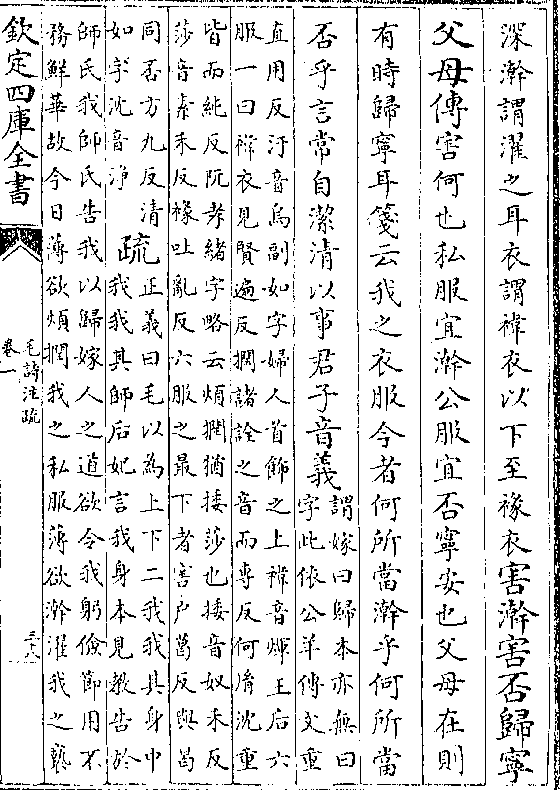 深澣謂濯之耳衣謂褘衣以下至褖衣害澣害否歸寧
父母傳害何也私服宜澣公服宜否寧安也父母在則
有時歸寧耳箋云我之衣服今者何所當澣乎何所當
否乎言常自潔清以事君子音義
謂嫁曰歸本亦無曰
字此依公羊傳文重
直用反汙音烏副如字婦人首飾之上褘音煇王后六
服一曰褘衣見賢遍反撋諸詮之音而專反何𦙍沈重
皆而純反阮孝緒字略云煩撋猶捼莎也捼音奴禾反
莎音素禾反褖吐亂反六服之最下者害户葛反與曷
同否方九反清
如字沈音淨
疏
正義曰毛以為上下二我我其身中
我我其師后妃言我身本見教告於
師氏我師氏告我以歸嫁人之道欲令我躬儉節用不
務鮮華故今日薄欲煩撋我之私服薄欲澣濯我之褻
欽定四庫全書
毛詩注疏
卷一
三十六